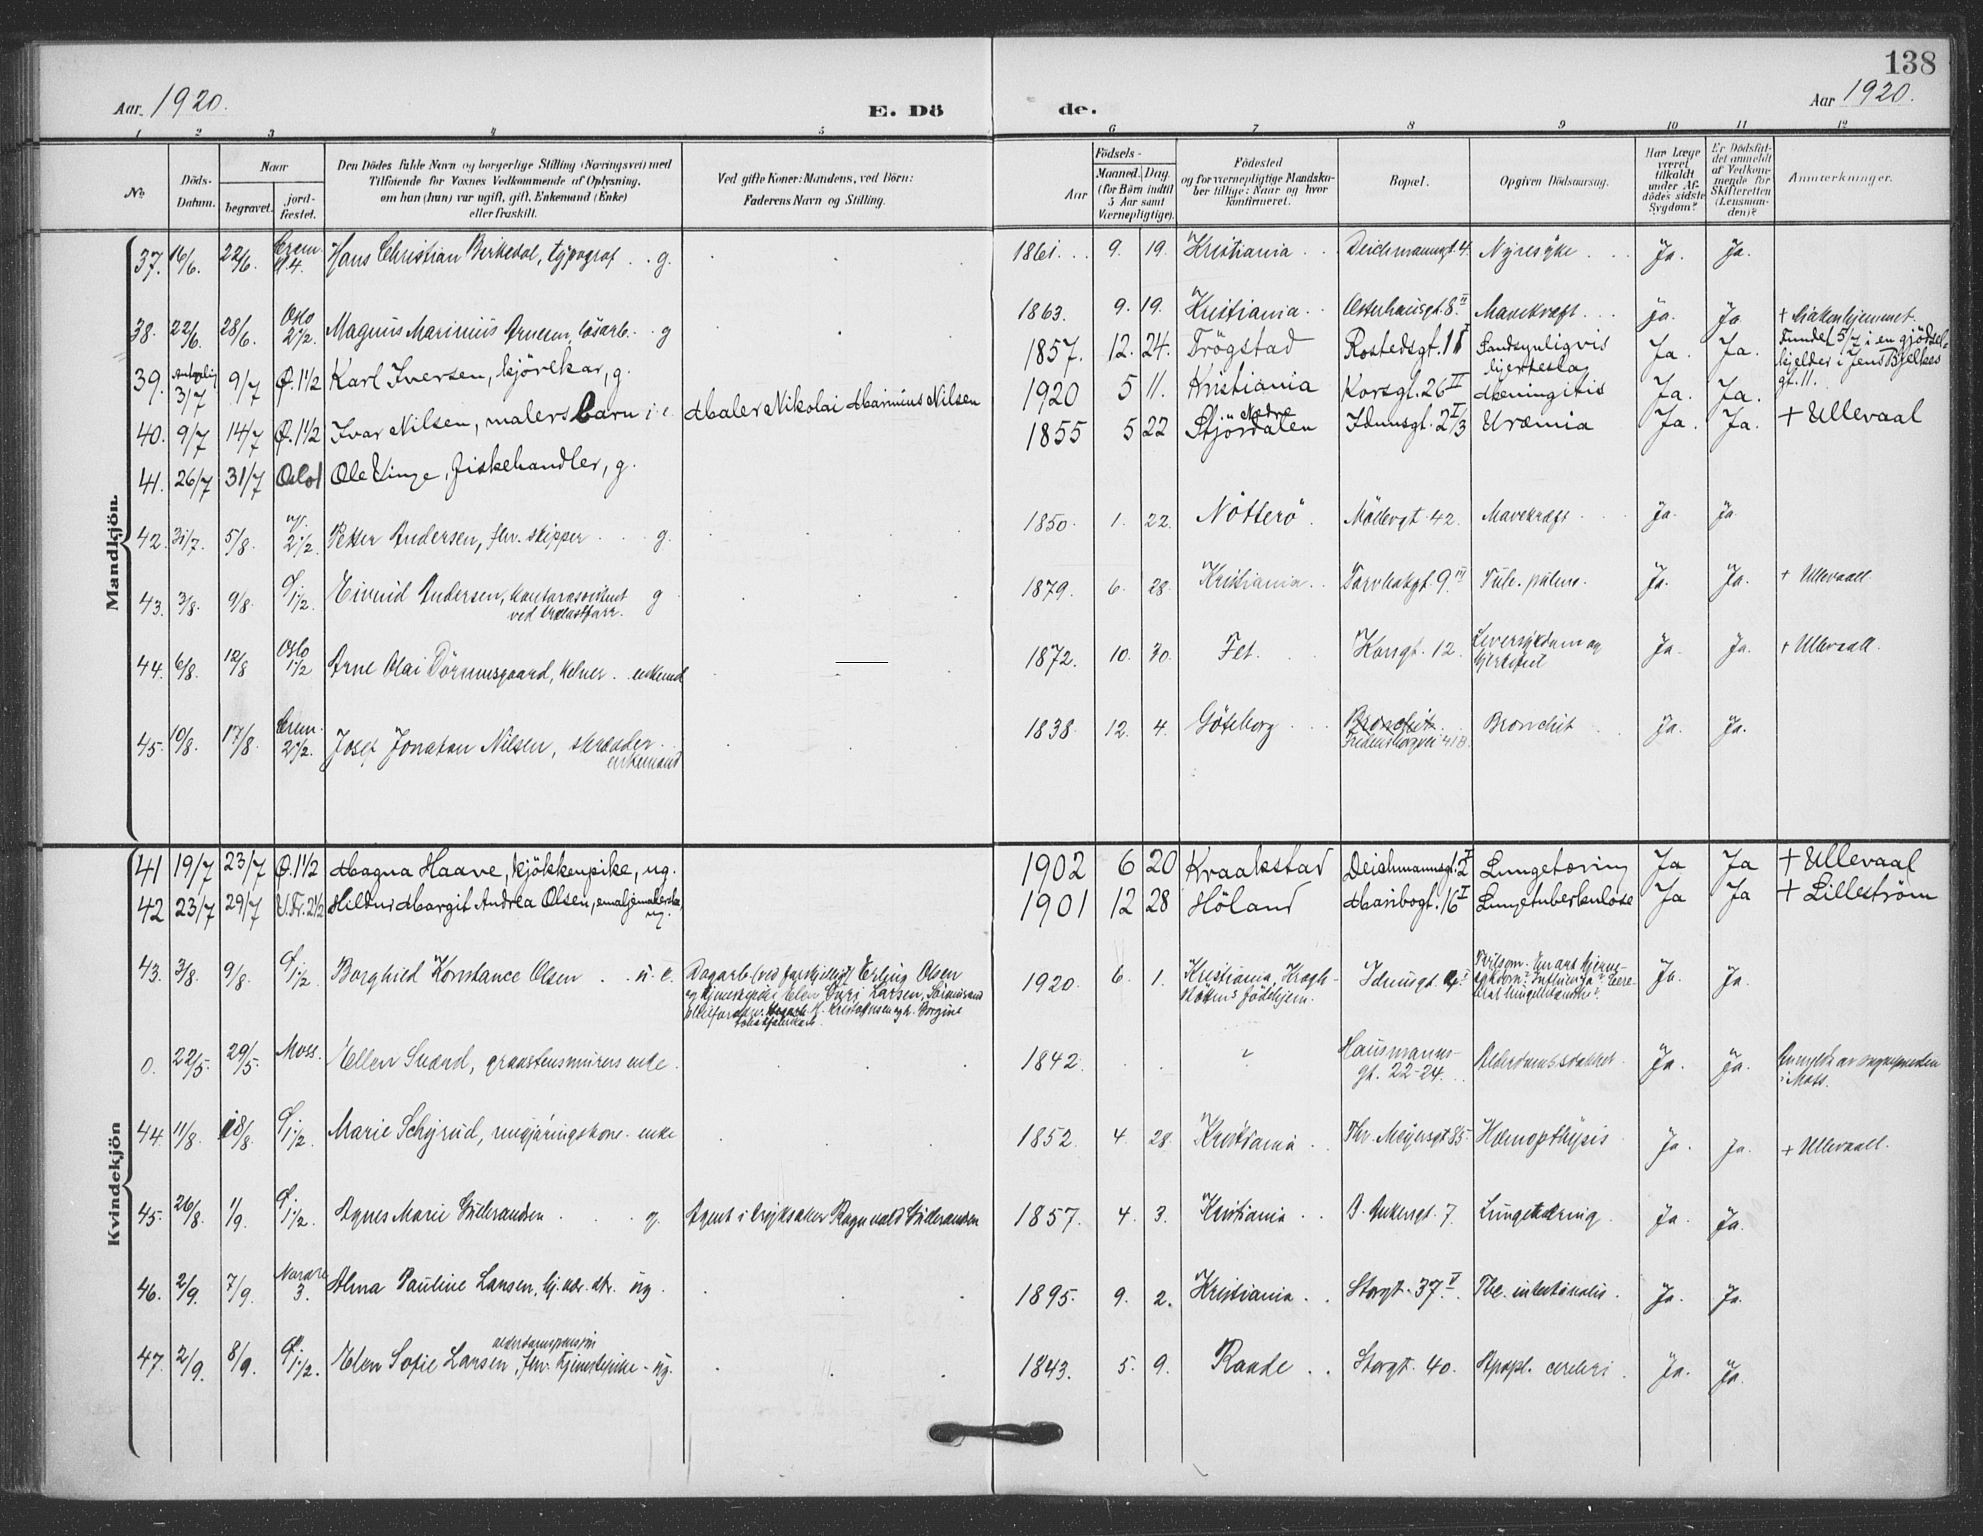 138
Aar 1920.
E. Dö
de.
Aar 1920.
1 2 3 4 5 6 7 8 9 10 11 12
No. Döds-Datum. Naar begravet. jord-fæstet.
Den Dödes fulde Navn og borgerlige Stilling (Næringsvei) med
Tilföiende for Voxnes Vedkommende af Oplysning,
om han (hun) var ugift, gift, Enkemand (Enke)
eller fraskilt.
Ved gifte Koner: Mandens, ved Börn:
Faderens Navn og Stilling.
Födsels-
Aar Maaned. Dag.
(for Börn indtil
5 Aar samt
Værnepligtige).
Födested
og for værnepligtige Mandska-
ber tillige: Naar og hvor
konfirmeret.
Bopæl.
Opgiven Dödsaarsag.
Har Læge
været
tilkaldt
under Af-
dödes sidste
Sygdom?
Er Dödsfal-
det anmeldt
af Vedkom-
mende for
Skifteretten
(Lensman-
den)?
Anmærkninger.
Mandkjön.
37. 16/6. 22/6. Crem. 4. Hans Christian Birkedal, typograf . . g. 1861. 9. 19. Kristiania Deichmannsgt. 4. Nyresyke Ja. Ja.
38. 22/6. 28/6. Oslo 2 1/2. Magnus Marinius Arnesen, løsarb. g 1863. 9. 19. Kristiania Osterhausgt. 8 II Mavekræft Ja. Ja + Makenhjemmet.
39. Antagelig 3/7 9/7 Ø. 1 1/2 Karl Iversen, kjörekar, g. 1857. 12. 24. Trögstad Rostedsgt. 11 I Sandsynligvis hjerteslag Ja. Ja. Fundet 5/7 i en gjödselkjelder i Jens Bjelkes gt. 11.
40. 9/7 14/7 Ø. 1 1/2 Ivar Nilsen, malers barn i e. Maler Nikolai Marinius Nilsen 1920 5 11. Kristiania Korsgt. 26 II Meningitis Ja. Ja.
41. 26/7 31/7 Oslo 1 Ole Vinge, fiskehandler, g. 1855 5 22 Nedre Stjördalen Idunsgt. 2 I/3 Uræmia Ja. Ja. + Ullevaal
42. 31/7. 5/8. 2 1/2. Peter Andersen, fhv. skipper g. 1850. 1. 22. Nötterö Möllergt. 42. Mavekræft Ja. Ja
43. 3/8. 9/8. Ø. 1 1/2. Eivind Andersen, kontorassistent g 1879. 6. 28. Kristiania Torvbakgt. 9 III Tub. pulm. Ja. Ja. + Ullevaall.
44. 6/8. 12/8 Oslo 1 1/2 Arne Olai Dörmusgaard, kelner enkemd 1872. 10. 30. Fet. Korsgt. 12. Leversykdom og hjertefeil Ja. Ja. + Ullevaall.
45. 10/8. 17/8. Crem. 2 1/2. Josef Jonatan Nilsen, skrædder enkemand 1838. 12. 4. Göteborg Bronchit Fredensborgvei 41 B. Bronchit Ja. Ja.
Kvindekjön
41 19/7 23/7 Ø. 1 1/2 Magna Haave, kjökkenpike, ug. 1902 6 20 Kraakstad Deichmannsgt. 2 I Lungetæring Ja Ja + Ullevaal
42 23/7 29/7 V. Fr. 2 1/2 Hildur Margit Andrea Olsen, emaljemalerske, ug. 1901 12 28 Höland Maribogt. 16 I Lungetuberkulose Ja Ja + Lilleström
43. 3/8. 9/8. Ø. 1 1/2. Borghild Konstance Olsen u. e. Dagarb. (ved farskjellig) Erling Olsen og tjenestepike Elen Guri Larsen, 1920. 6. 1. Kristiania, Kroghstöttens födehjem. Idunsgt. 4 I Ja. Ja.
0. 22/5. 29/5. Moss. Ellen Svænd, graastensmurers enke. 1842. " Hausmannsgt. 22-24. Alderdomssvakhet. Ja. Ja. av sognepresten i Moss.
44. 11/8. 18/8. Ø. 1 1/2. Marie Schjrud, rengjöringskone enke 1852. 4. 28. Kristiania Thv. Meyersgt 85. Hæmopthysis Ja. Ja. + Ullevaall.
45. 26/8. 1/9. Ø. 1 1/2. Agnes Marie Gulbrandsen g. Agent i trykksaker Ragnvald Gulbrandsen 1857. 4. 3. Kristiania B. Ankersgt. 7. Lungetæring. Ja. Ja.
46. 2/9. 7/9. Nordre 3. Alma Pauline Larsen, hj. vær. dtr. ug. 1895. 9. 2. Kristiania Storgt. 37 V. Tbc. intestinalis. Ja. Ja.
47. 2/9. 8/9. Ø. 1 1/2. Elen Sofie Larsen, alderdomspensjon fhv. tjenestepike ug. 1843. 5. 9. Raade Storgt. 40. Apopl. cerebri. Ja. Ja.